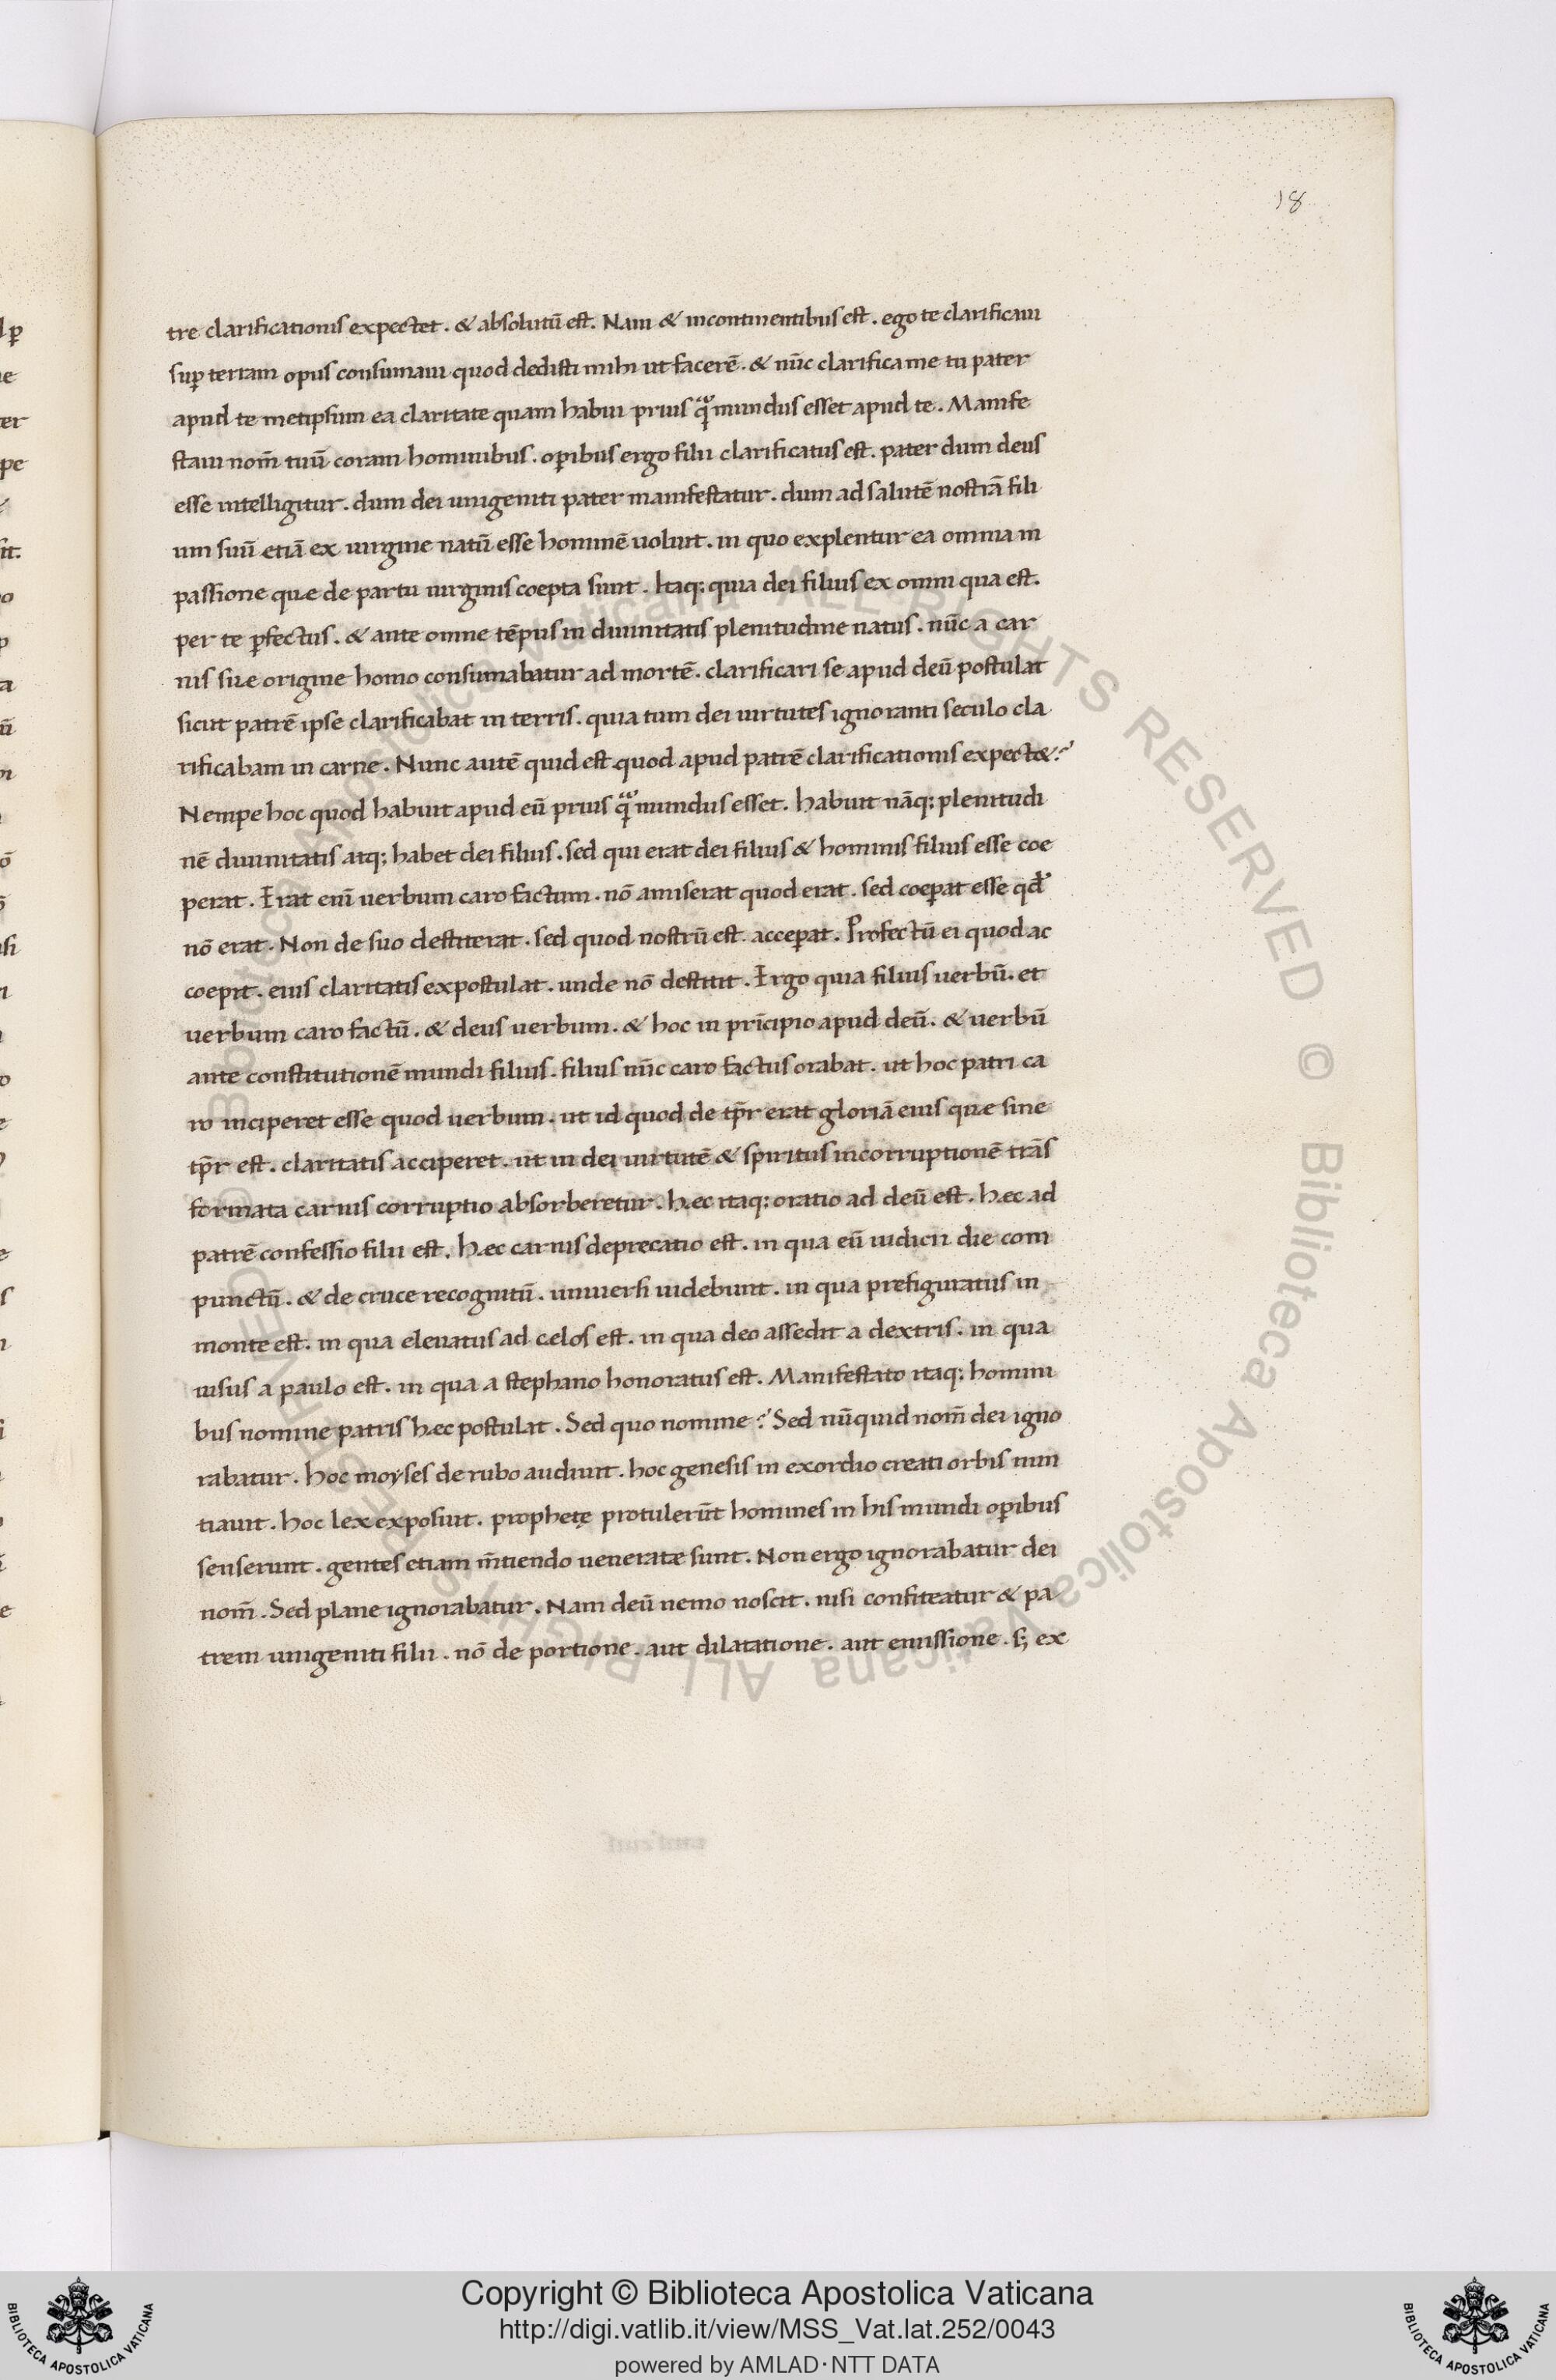 18
tre clarificationis expectet. & absolutũ est. Nam & incontinentibus est. ego te clarificaui
suꝑ terram opus consumaui quod dedisti mihi ut facerẽ. & nũc clarifica me tu pater
apud te metipsum ea claritate quam habui prius qͣ̃ mundus esset apud te. Manife
staui nom̃ tuũ coram hominibus. oꝑibus ergo filii clarificatus est. pater dum deus
esse intelligitur. dum dei unigeniti pater manifestatur. dum ad salutẽ nostrã fili
um suũ etiã ex uirgine natũ esse hominẽ uoluit. in quo explentur ea omnia in
passione quæ de partu uirginis coepta sunt. Itaq; quia dei filius ex omni qua est.
per te ꝑfectus. & ante omne tẽpus in diuinitatis plenitudine natus. nũc a car
nis suæ origine homo consumabatur ad mortẽ. clarificari se apud deũ postulat
sicut patrẽ ipse clarificabat in terris. quia tum dei uirtutes ignoranti seculo cla
rificabam in carne. Nunc autẽ quid est quod apud patrẽ clarificationis expect&?
Nempe hoc quod habuit apud eũ prius qͣ̃ mundus esset. habuit nãq; plenitudi
nẽ diuinitatis atq; habet dei filius. sed qui erat dei filius & hominis filius esse coe
perat. Erat enĩ uerbum caro factum. nõ amiserat quod erat. sed coeꝑat esse qđ
nõ erat. Non de suo destiterat. sed quod nostrũ est acceꝑat. Profectũ ei quod ac
coepit. eius claritatis expostulat. unde nõ destitit. Ergo quia filius uerbũ. et
uerbum caro factũ. & deus uerbum. & hoc in prĩcipio apud deũ. & uerbũ
ante constitutionẽ mundi filius. filius nũc caro factus orabat. ut hoc patri ca
ro inciperet esse quod uerbum. ut id quod de tp̃r erat gloriã eius quæ sine
tp̃r est. claritatis acciperet. ut in dei uirtutẽ & spiritus incorruptionẽ trãs
formata carnis corruptio absorberetur. hæc itaq; oratio ad deũ est. hæc ad
patrẽ confessio filii est. hæc carnis deprecatio est. in qua eũ iudicii die com
punctũ. & de cruce recognitũ. uniuersi uidebunt. in qua prefiguratus in
monte est. in qua eleuatus ad celos est. in qua deo assedit a dextris. in qua
uisus a paulo est. in qua a stephano honoratus est. Manifestato itaq; homini
bus nomine patris hæc postulat. Sed quo nomine? Sed nũquid nom̃ dei igno
rabatur. hoc moyses de rubo audiuit. hoc genesis in exordio creati orbis nun
tiauit. hoc lex exposuit. prophetę protulerũt homines in his mundi oꝑibus
senserunt. gentes etiam m̃tiendo ueneratæ sunt. Non ergo ignorabatur dei
nom̃. Sed plane ignorabatur. Nam deũ nemo noscit. nisi confiteatur & pa
trem unigeniti filii. nõ de portione. aut dilatatione. aut emissione. s; ex
© Biblioteca Apostolica Vaticana ALL RIGHTS RESERVED © Biblioteca Apostolica Vaticana ALL RIGHTS RESERVED
Copyright © Biblioteca Apostolica Vaticana
http://digi.vatlib.it/view/MSS_Vat.lat.252/0043
powered by AMLAD·NTT DATA
BIBLIOTECA APOSTOLICA VATICANA
BIBLIOTECA APOSTOLICA VATICANA